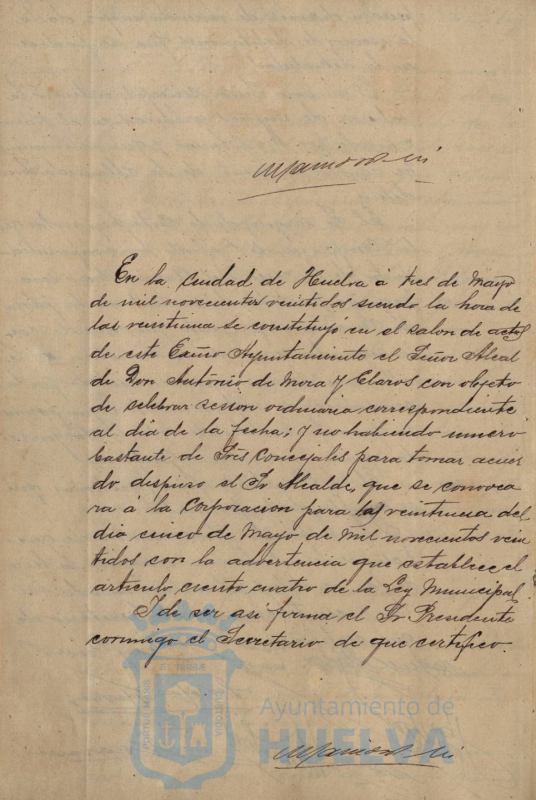 En la Ciudad de Huelva á tres de Mayo
de mil novecientos veintidos siendo la hora de
las veintiuna se constituyó en el salon de actos
de este Exmo Ayuntamiento el Señor Alcal
de Don Antonio de Mora y Claros con objeto
de celebrar sesion ordinaria correspondiente
al dia de la fecha; y no habiendo numero
bastante de Sres Concejales para tomar acuer
do dispuso el Sr Alcalde, que se convoca
ra á la Corporacion para las veintiuna del
dia cinco de Mayo de Mil novecientos vein
tidos con la advertencia que establece el
articulo ciento cuatro de la Ley Municipal.
Y de ser asi firma el Sr Presidente
conmigo el Secretario de que certifico.
Ayuntamiento de
HUELVA